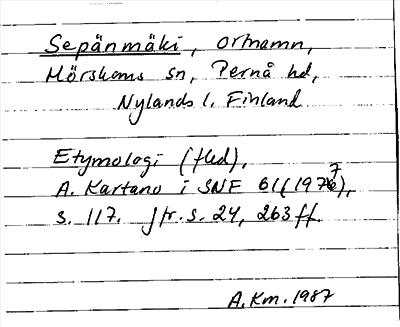 Sepänmäki, ortnamn,
Mörskoms sn, Pernå hd,
Nylands l. Finland
Etymologi (fled).
A. Kartano i SNF 61 (1977),
s. 117. Jfr. s. 24, 263 ff.
A.Km. 1987